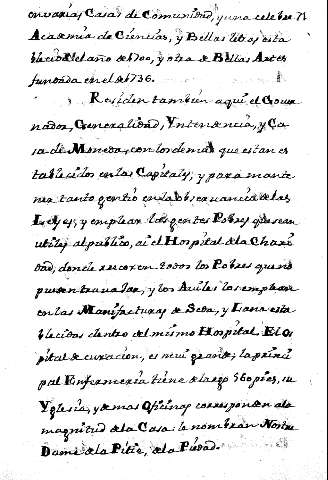 en varias Casas de Comunidad, y una celebre 71
Academia de Ciencias, y Bellas letras esta
blecida el año de 1700, y otra de Bellas Artes
fundada en el de 1736.
Residen tambien aqui el Gover
nador, Generalidad, Yntendencia, y Ca
sa de Moneda, con los demas que estan es
tablecidos en las Capitales; y para mante
ner tanto gentio en la observancia de las
Leyes; y emplear las gentes Pobres que sean
utiles al publico, ai el Hospital de la Chari
dad, donde recoxen todos los Pobres que no
pueden travajar, y los Aviles los emplean
en las Manifacturas de Seda, y Lana esta
blecidas dentro del mismo Hospital. El Os
pital de curacion, es mui grande; la princi
pal Enfermeria tiene de largo 560 pies, su
Yglesia, y demas Oficinas corresponden a la
magnitud de la Casa: le nombran Nostre
Dame de la Pitie, de la Piedad.